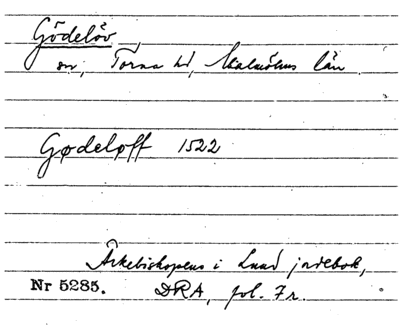 Gödelöv
sn, Torna hd, Malmöhus län
Gødeløff 1522
Ärkebiskopens i Lund jordebok,
Nr 5285. DRA, fol. 7 r.